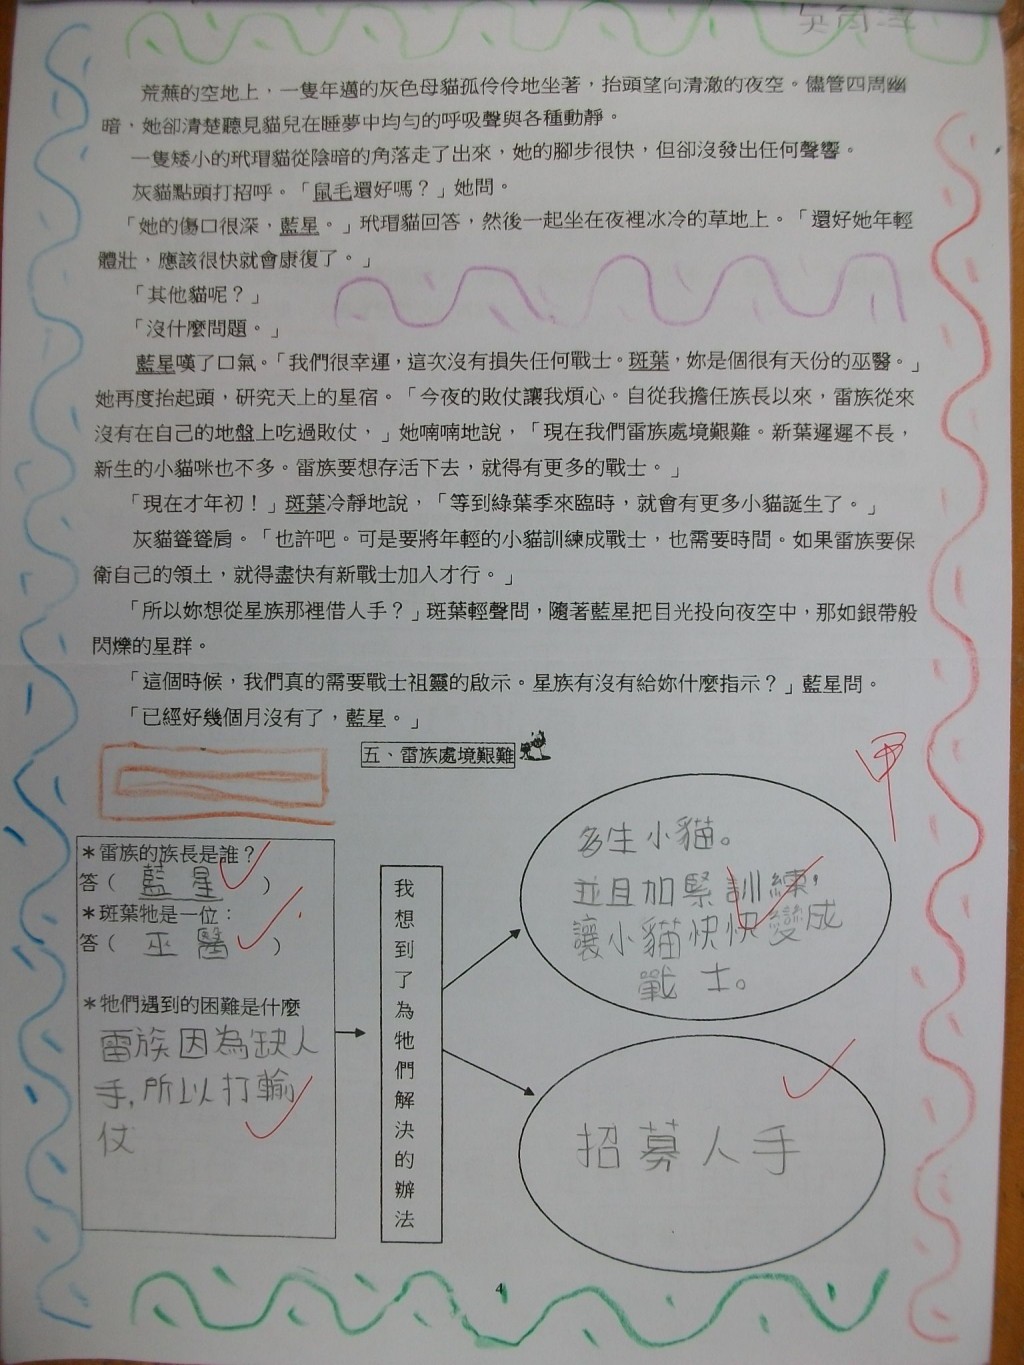 荒蕪的空地上，一隻年邁的灰色母貓孤伶伶地坐著，抬頭望向清澈的夜空。儘管四周幽
暗，她卻清楚聽見貓兒在睡夢中均勻的呼吸聲與各種動靜。
一隻矮小的玳瑁貓從陰暗的角落走了出來，她的腳步很快，但卻沒發出任何聲響。
灰貓點頭打招呼。「鼠毛還好嗎？」她問。
「她的傷口很深，藍星。」玳瑁貓回答，然後一起坐在夜裡冰冷的草地上。「還好她年輕
體壯，應該很快就會康復了。」
「其他貓呢？」
「沒什麼問題。」
藍星嘆了口氣。「我們很幸運，這次沒有損失任何戰士。斑葉，妳是個很有天份的巫醫。」
她再度抬起頭，研究天上的星宿。「今夜的敗仗讓我煩心。自從我擔任族長以來，雷族從來
沒有在自己的地盤上吃過敗仗，」她喃喃地說，「現在我們雷族處境艱難。新葉遲遲不長，
新生的小貓咪也不多。雷族要想存活下去，就得有更多的戰士。」
「現在才年初！」斑葉冷靜地說，「等到綠葉季來臨時，就會有更多小貓誕生了。」
灰貓聳聳肩。「也許吧。可是要將年輕的小貓訓練成戰士，也需要時間。如果雷族要保
衛自己的領土，就得盡快有新戰士加入才行。」
「所以妳想從星族那裡借人手？」斑葉輕聲問，隨著藍星把目光投向夜空中，那如銀帶般
閃爍的星群。
「這個時候，我們真的需要戰士祖靈的啟示。星族有沒有給妳什麼指示？」藍星問。
「已經好幾個月沒有了，藍星。」
五、雷族處境艱難
甲
＊雷族的族長是誰？
答（ 藍星 ）
＊斑葉牠是一位：
答（ 巫醫 ）
＊牠們遇到的困難是什麼
雷族因為缺人
手，所以打輸
仗
我想到了為牠們解決的辦法
多生小貓。
並且加緊訓練，
讓小貓快快變成
戰士。
招募人手
4